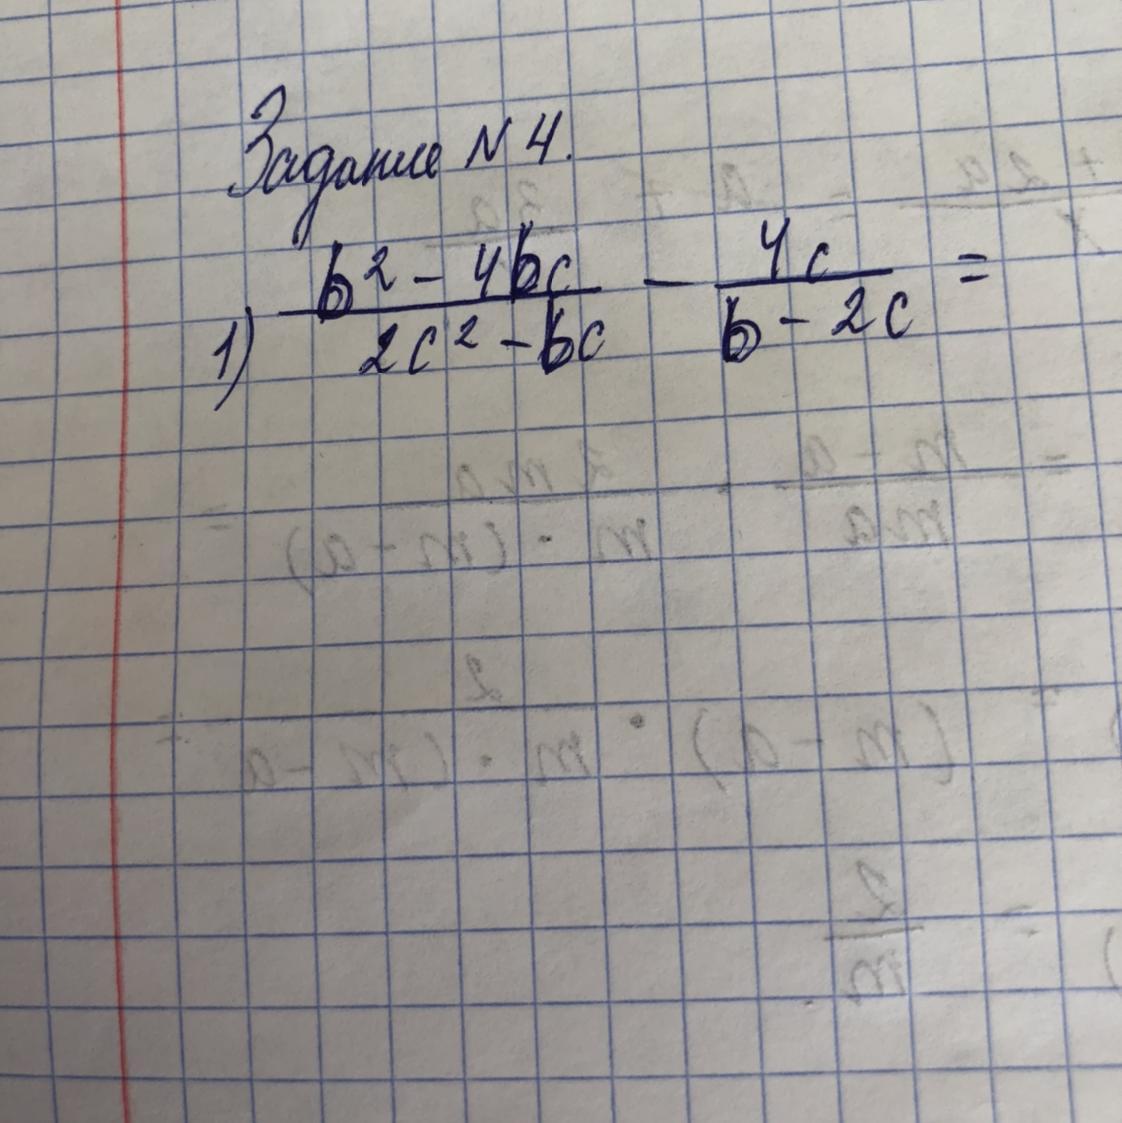 Задание N 4.
1) \frac{b^2 - 4bc}{2c^2 - bc} - \frac{4c}{b - 2c} =